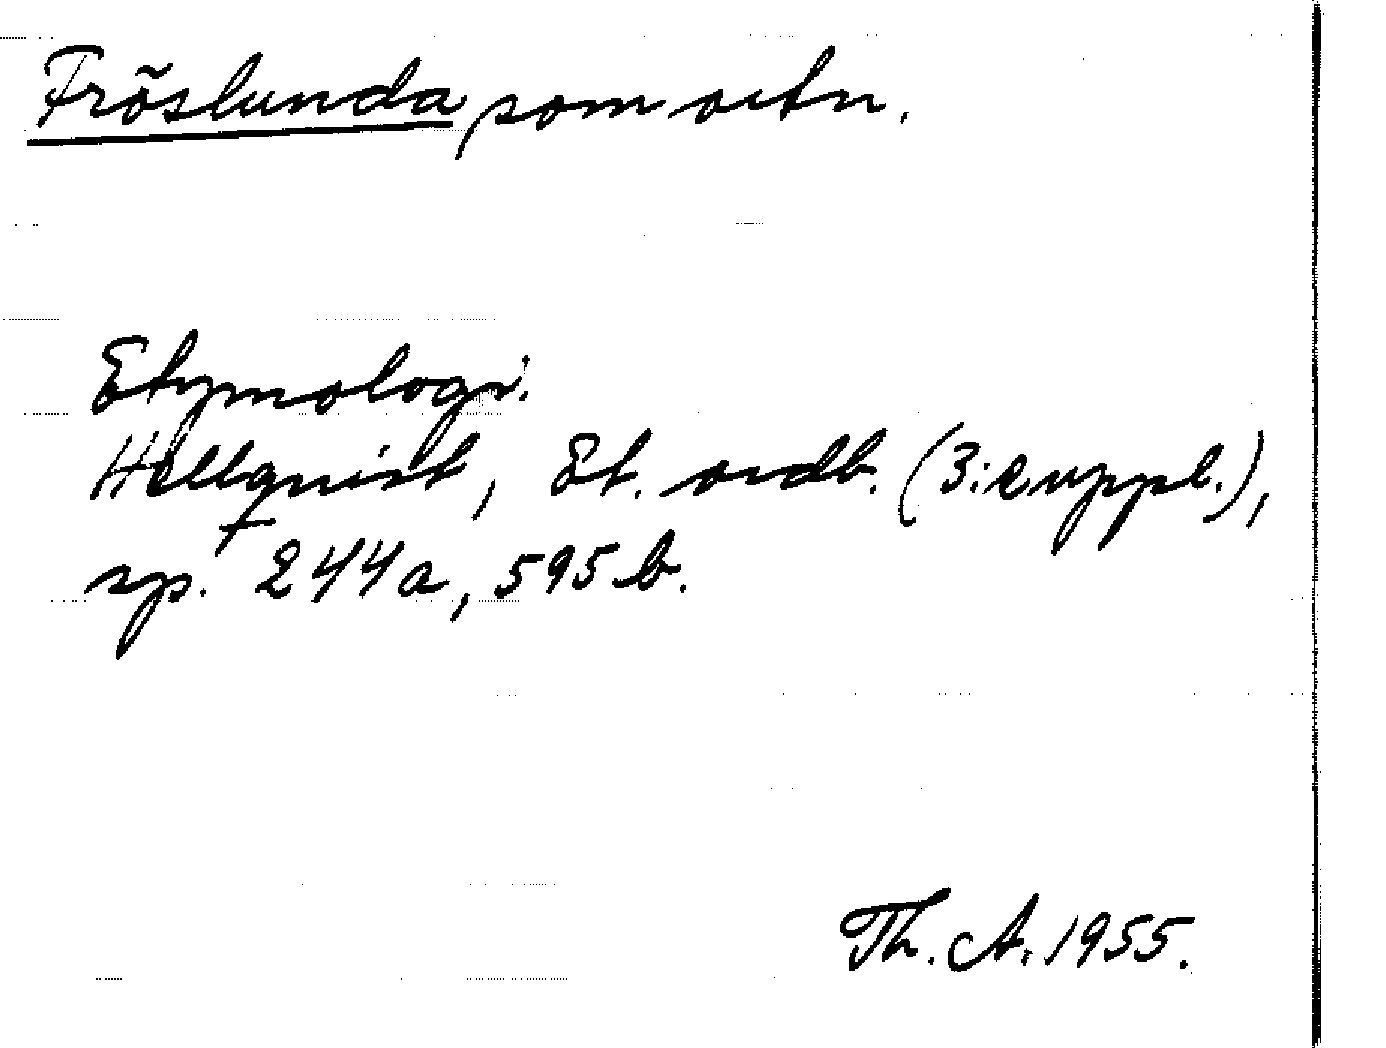 Fröslunda som ortn.
Etymologi.
Hellquist, Et. ordb. (3:e uppl.),
sp. 244a, 595b.
Th. A. 1955.